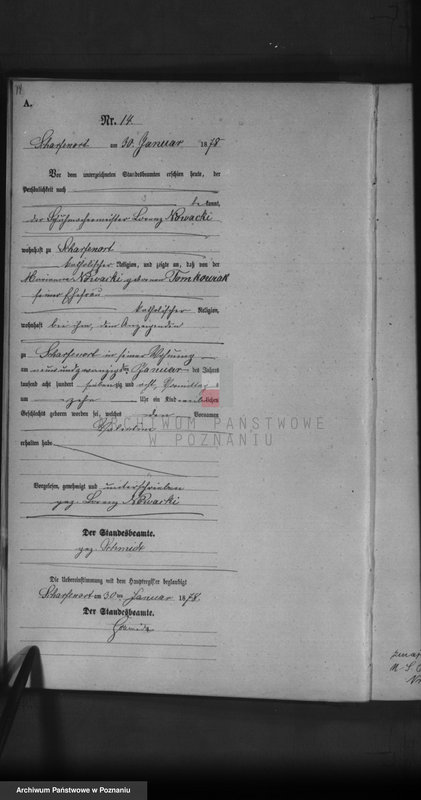 14
A.
Nr. 14.
Scharfenort am 30. Januar 1878
Vor dem unterzeichneten Standesbeamten erschien heute, der
Persönlichkeit nach
be kannt,
der Schuhmachermeister Lorenz Nowacki
wohnhaft zu Scharfenort
katholischer Religion, und zeigte an, daß von der
Marianna Nowacki geborenen Tomkowiak
seiner Ehefrau
katholischer Religion,
wohnhaft bei ihm, dem Anzeigenden
zu Scharfenort in seiner Wohnung
am neunundzwanzigsten Januar des Jahres
tausend acht hundert siebenzig und acht, Vormittags
um zehn Uhr ein Kind lichen
Geschlechts geboren worden sei, welches den Vornamen
erhalten habe
Vorgelesen, genehmigt und unterschrieben
gez. Lorenz Nowacki
Der Standesbeamte.
gez. Schmidt
Die Uebereinstimmung mit dem Hauptregister beglaubigt
Scharfenort am 30ten Januar 1878.
Der Standesbeamte.
ARCHIWUM PAŃSTWOWE
W POZNANIU
Archiwum Państwowe w Poznaniu